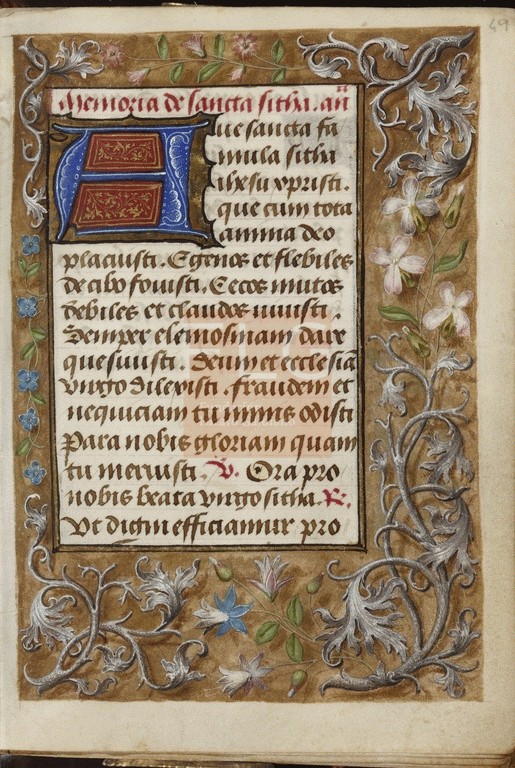 49
Memoria de sancta sitha. añ
Aue sancta fa
mula sitha
ihesu xpristi.
que cum tota
amma deo
placuisti. Egenos et flebiles
de cibo fouisti. Cecos mutos
debiles et claudos uinisti.
Semper elemosinam dare
quesiuisti. Deum et ecclesiã
virgo dilexisti. fraudem et
nequiciam tu nimis odisti
Para nobis gloriam quam
tu meruisti. V. Ora pro
nobis beata virgo sitha. R.
Vt digni efficiamur pro